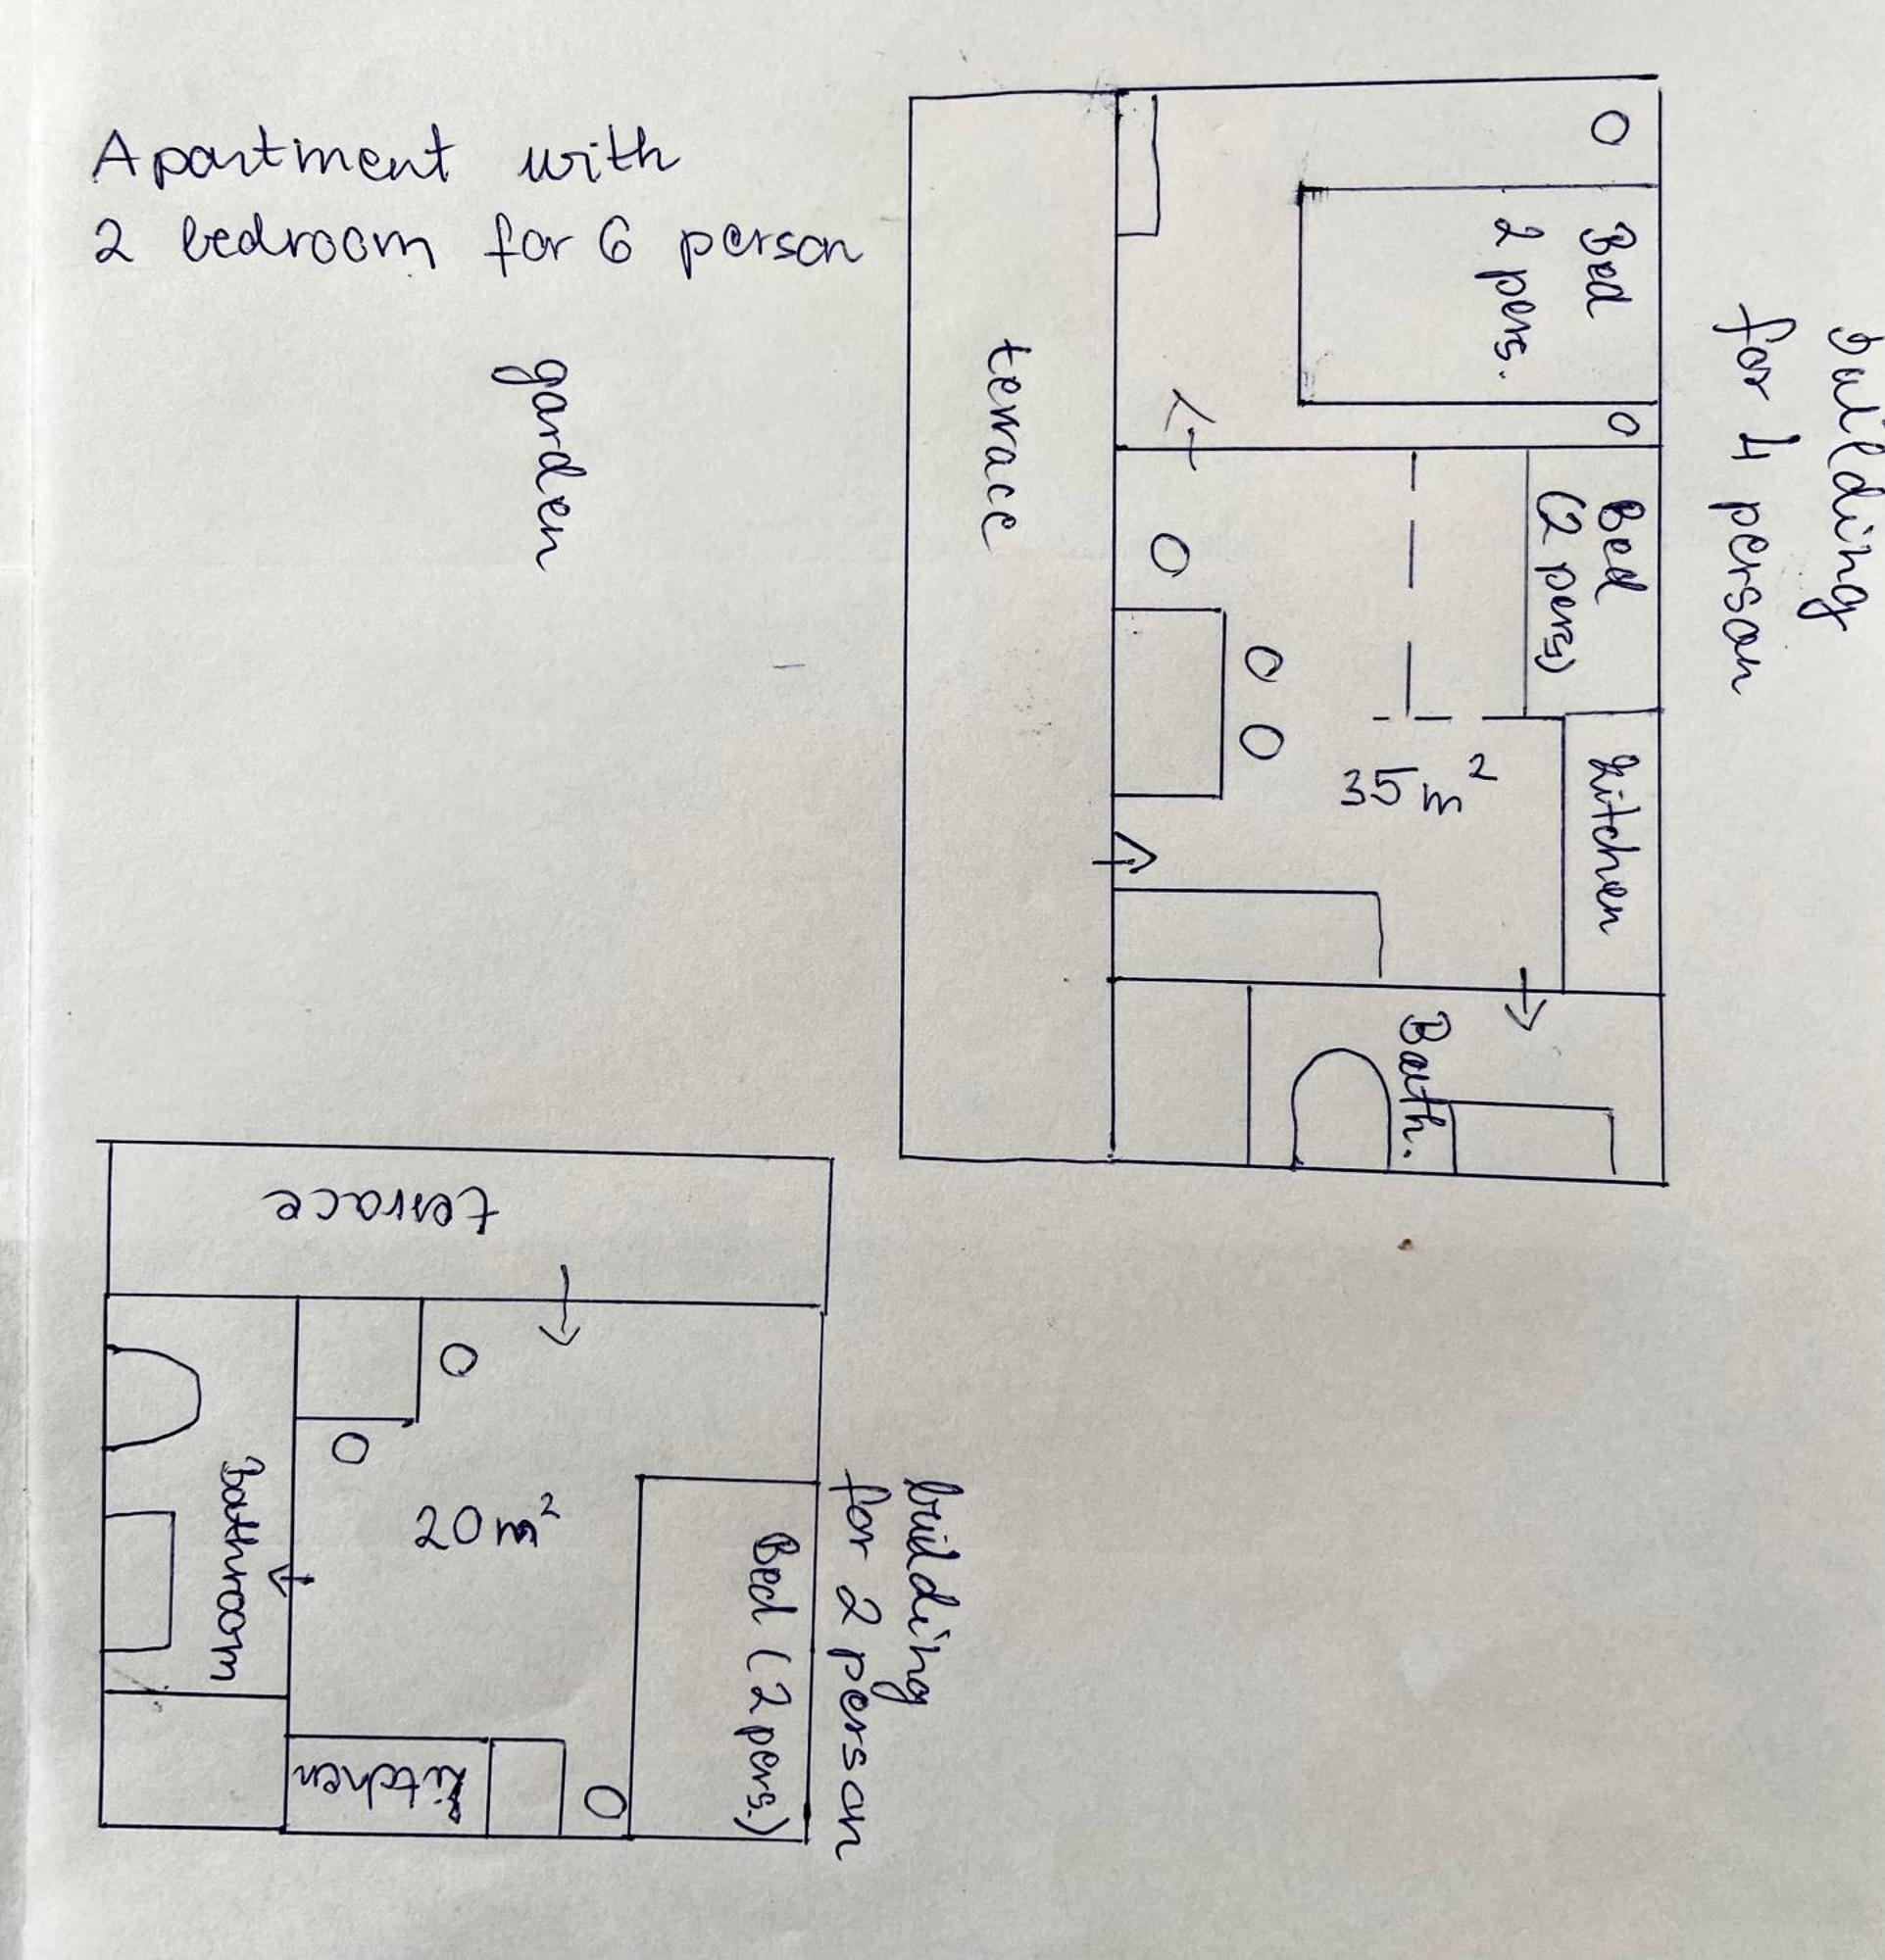 Apartment with
2 bedroom for 6 person
garden
terrace
building
for 4 person
Bed
2 pers.
Bed
(2 pers)
kitchen
35 m²
Bath.
terrace
bathroom
20 m²
kitchen
Bed (2 pers.)
building
for 2 person